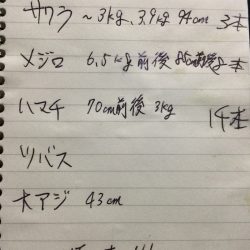 サワラ ～3kg、3.9kg 94cm 3本
メジロ 6.5kg前後 85cm前後 本
ハマチ 70cm前後 3kg 14本
ツバス
大アジ 43cm